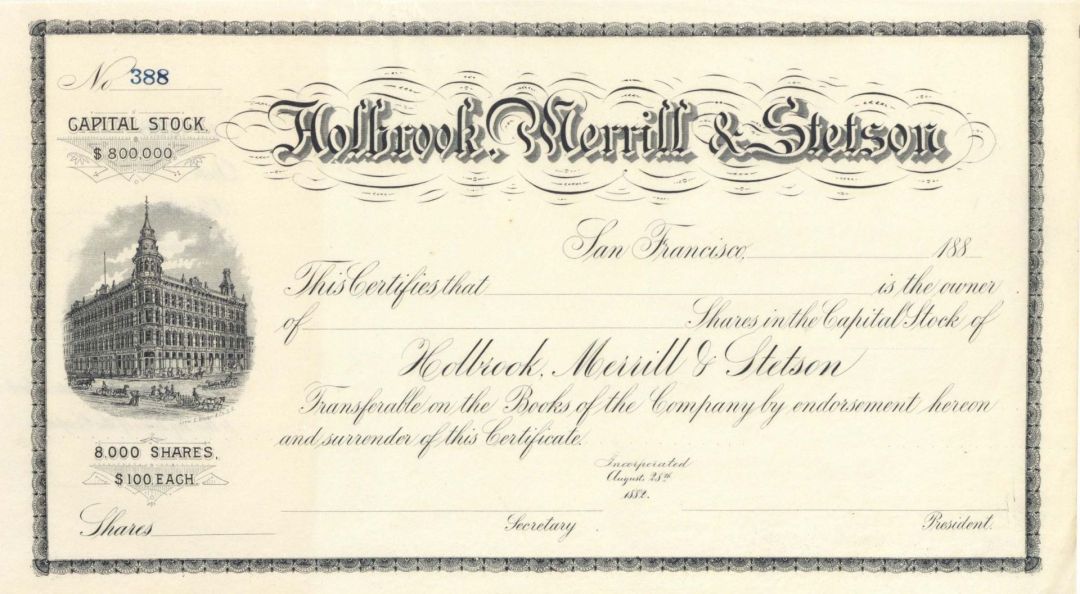 No 388
CAPITAL STOCK,
$ 800,000
Holbrook, Merrill & Stetson
San Francisco, 188
This Certifies that is the owner
of Shares in the Capital Stock of
Holbrook, Merrill & Stetson
Transferable on the Books of the Company by endorsement hereon
and surrender of this Certificate.
8,000 SHARES,
$100 EACH
Incorporated
August 28th
1882.
Shares
Secretary President.